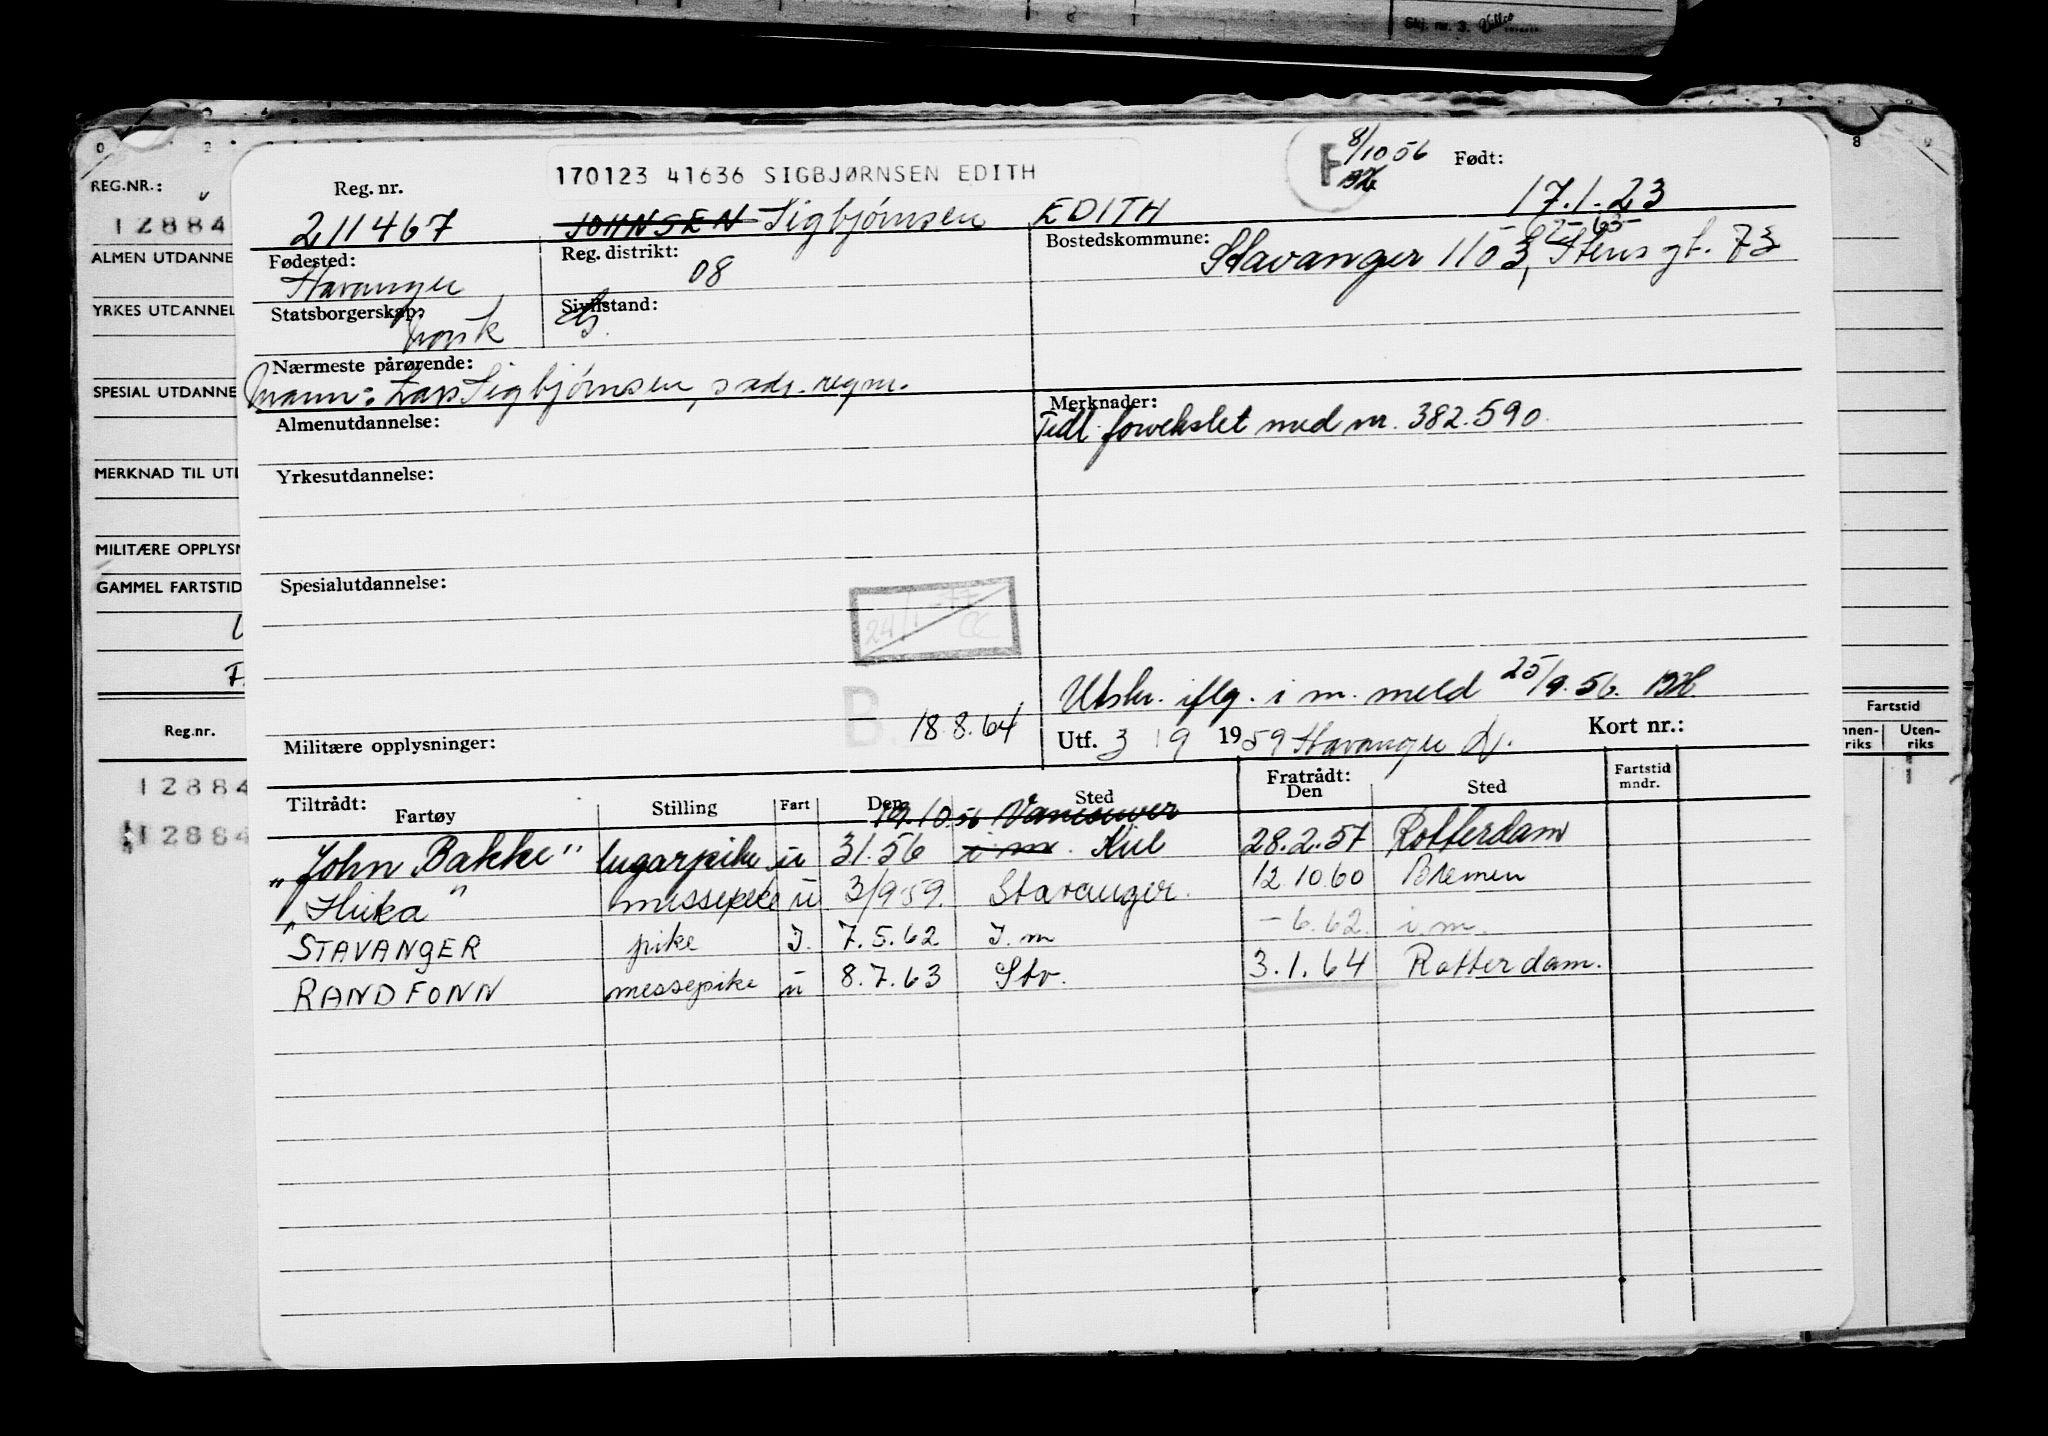 Skj. nr. 3.
REG.NR.:
12884
ALMEN UTDANNE
YRKES UTDANNEL
SPESIAL UTDANNE
MERKNAD TIL UTD
MILITÆRE OPPLYSN
GAMMEL FARTSTID
Reg.nr.
12884
12884
Fartstid
nnen-riks Uten-riks
170123 41636 SIGBJØRNSEN EDITH
F 8/10 56
Født:
17.1.23
Reg. nr.
211467
JOHNSEN Sigbjørnsen EDITH
Fødested:
Stavanger
Reg. distrikt:
08
Bostedskommune:
Stavanger 1103, Stens gt. 73
Statsborgerskap:
norsk
Sivilstand:
G.
Nærmeste pårørende:
Mann: Lars Sigbjørnsen, s adr. reg nr.
Almenutdannelse:
Merknader:
Tidl. forvekslet med nr. 382.590.
Yrkesutdannelse:
Spesialutdannelse:
24/1-77
CC
B
18.8.64
Militære opplysninger:
Utskr. iflg. i m. meld 25/9.56.
Utf. 3 9 1959 Stavanger
Kort nr.:
Tiltrådt:
Fartøy Stilling Fart Den Sted
Fratrådt:
Den Sted
Fartstid mndr.
19.10.56 Vancouver
"John Bakke" lugarpike u 31.56 i m. Kiel 28.2.57 Rotterdam
messepike u 3/9 59. Stavanger. 12.10.60 Bremen
STAVANGER pike I. 7.5.62 I. m - 6.62. i.m.
RANDFONN messepike u 8.7.63 Stv. 3.1.64 Rotterdam.